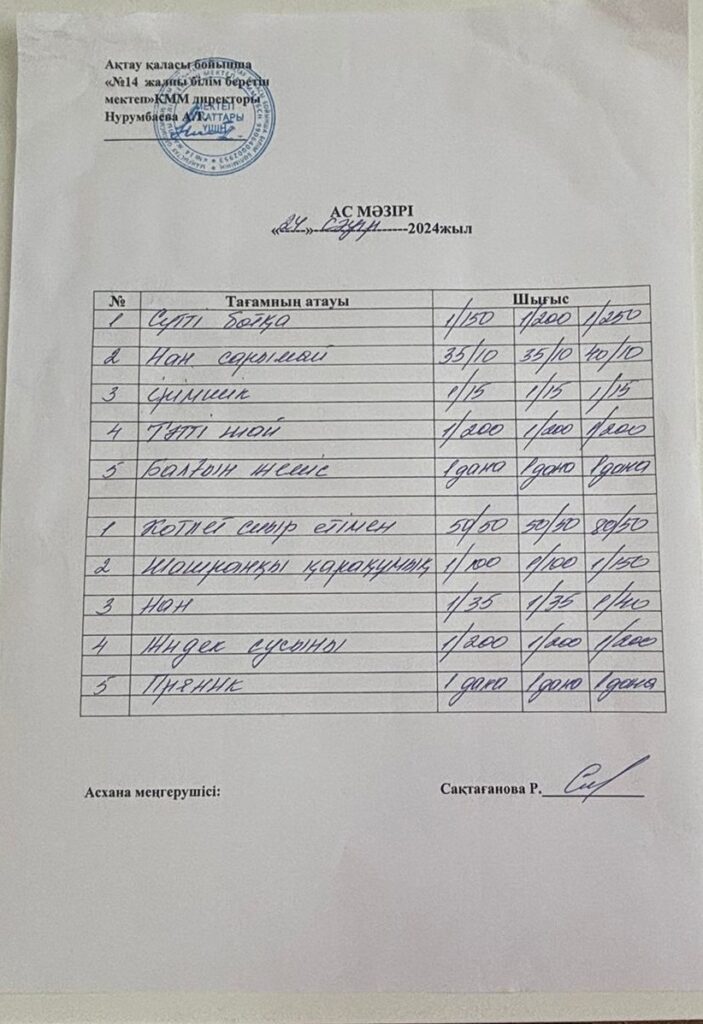 Ақтау қаласы бойынша
«№14 жалпы білім беретін
мектеп»КММ директоры
Нурумбаева А.Т.
МЕКТЕП
ҚҰЖАТТАРЫ
ҮШІН
АС МӘЗІРІ
«24» сәуір 2024жыл
№ Тағамның атауы Шығыс
1 Сүтті ботқа 1/150 1/200 1/250
2 Нан сарымай 35/10 35/10 40/10
3 ірімшік 1/15 1/15 1/15
4 Тәтті шай 1/200 1/200 1/200
5 Балғын жеміс 1 дана 1 дана 1 дана
1 Котлет сиыр етімен 50/50 50/50 80/50
2 қарақұмық 1/100 1/100 1/150
3 Нан 1/35 1/35 1/40
4 Жидек сусыны 1/200 1/200 1/200
5 Пряник 1 дана 1 дана 1 дана
Асхана меңгерушісі: Сақтағанова Р.